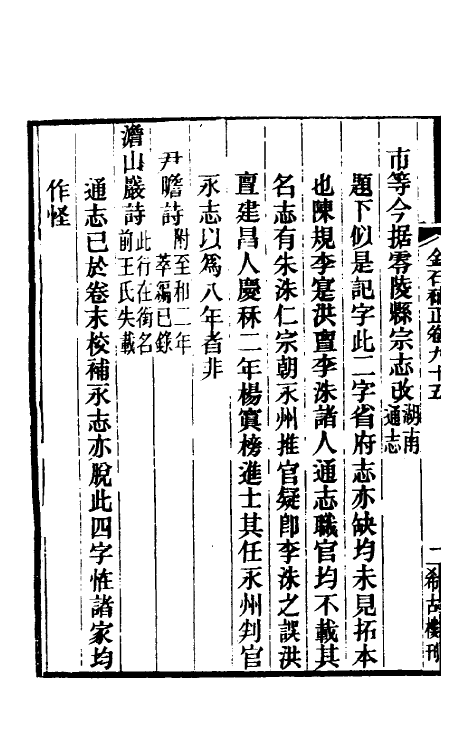 金石補正卷九十五
二 希古樓刊
市等今据零陵縣宗志改湖南通志
題下似是記字此二字省府志亦缺均未見拓本
也陳規李寔洪亶李洙諸人通志職官均不載其
名志有朱洙仁宗朝永州推官疑卽李洙之誤洪
亶建昌人慶秝二年楊寘榜進士其任永州判官
永志以爲八年者非
尹瞻詩附至和二年萃編已錄
澹山巖詩此行在銜名前王氏失載
通志已於卷末校補永志亦脫此四字恠諸家均
作怪